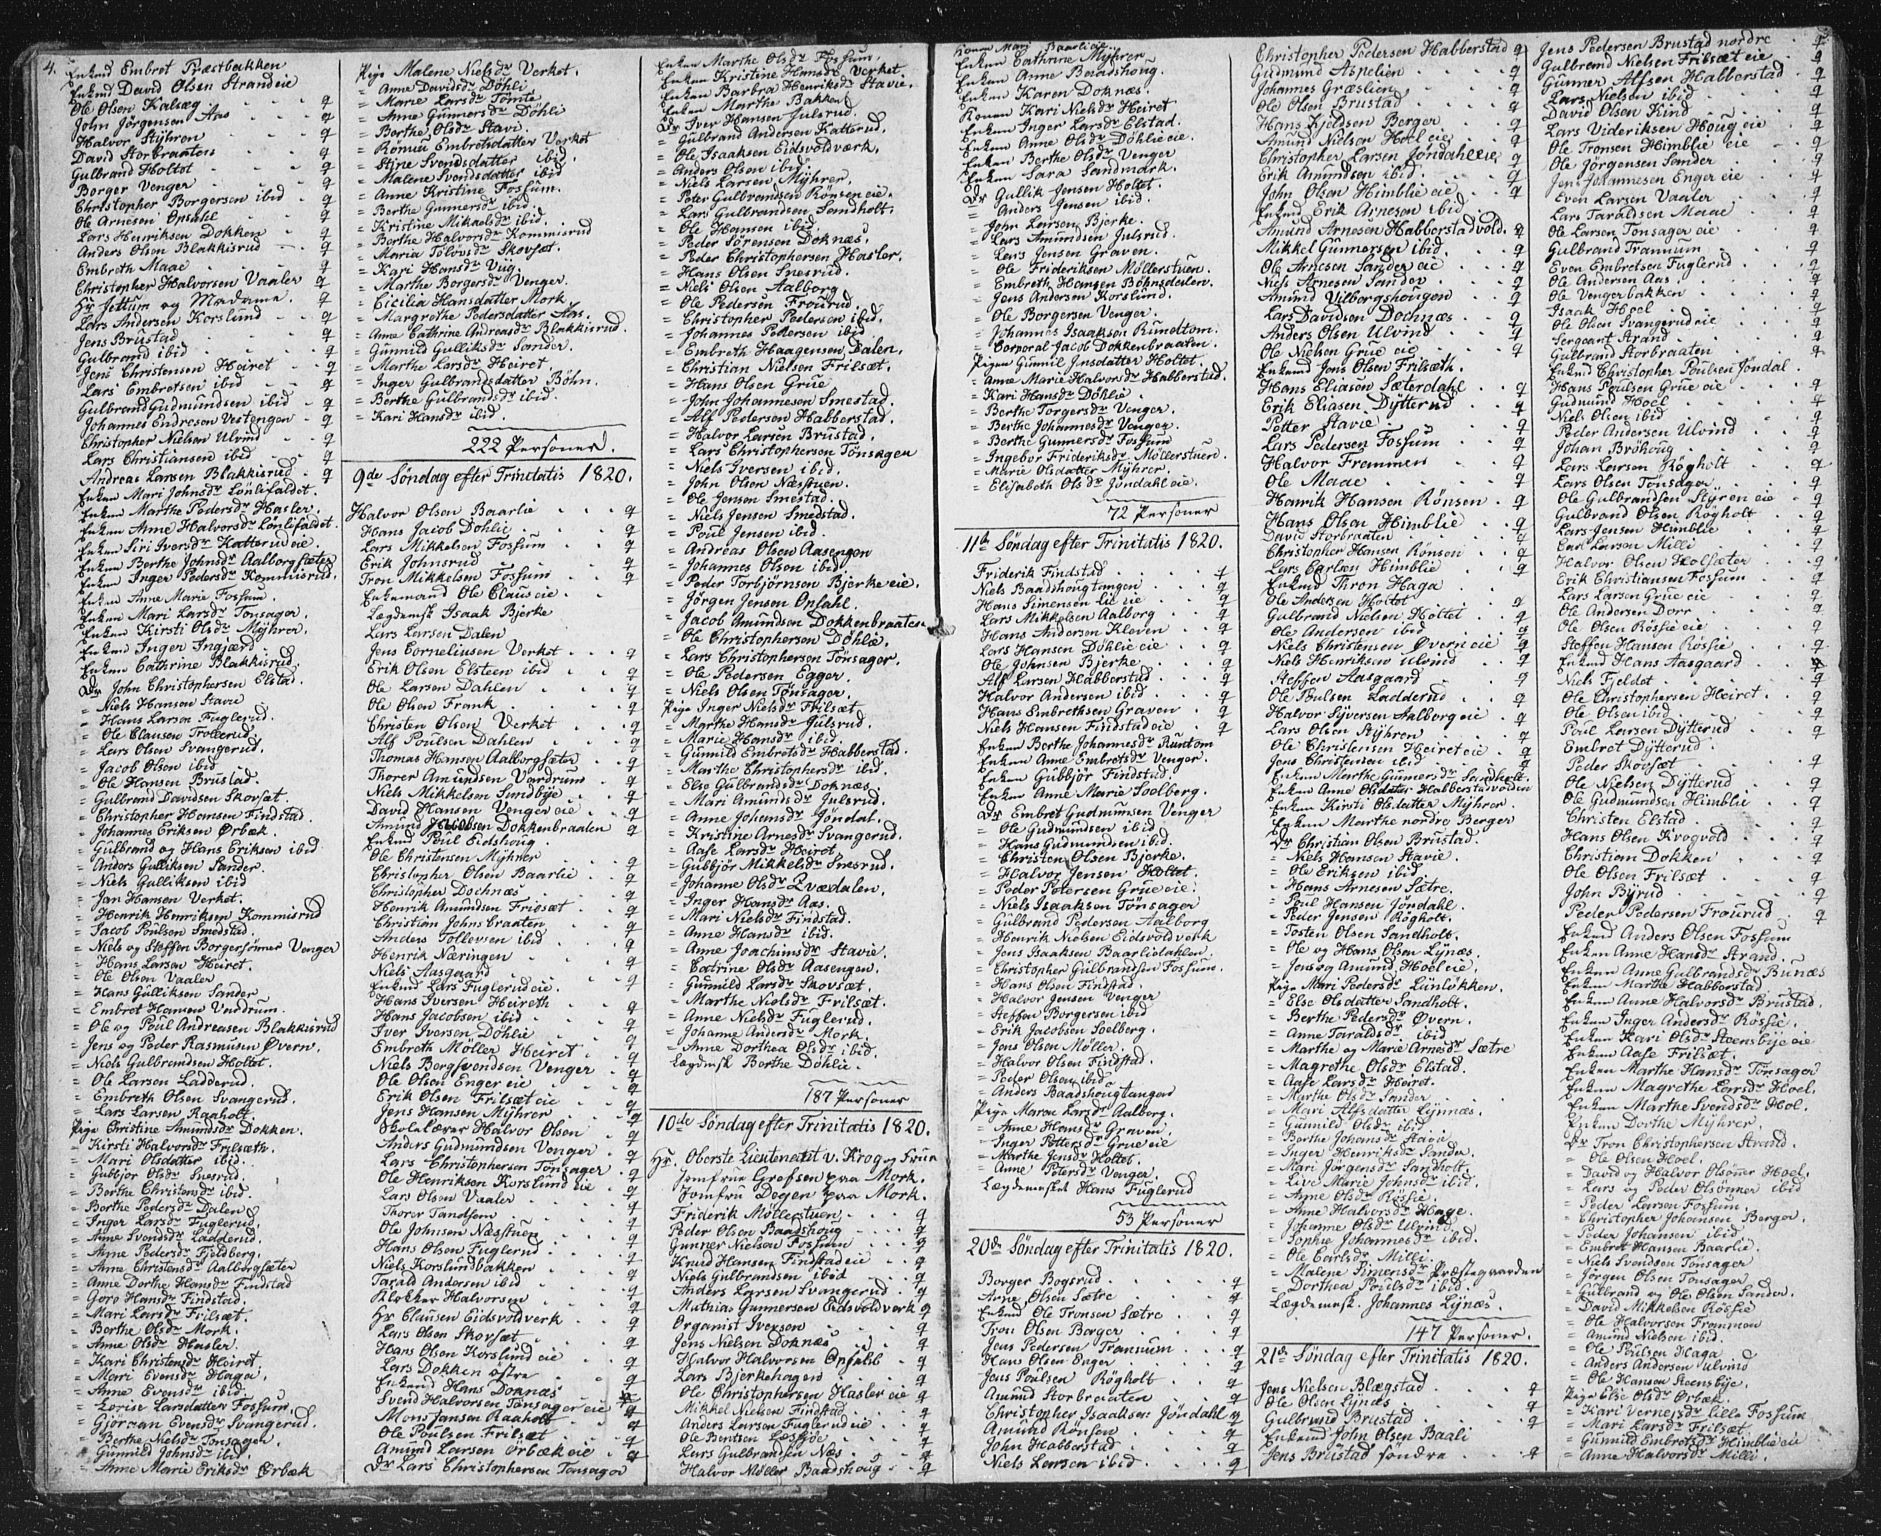 4.
Enkmd Embret Præstbakken
Enkmd David Olsen Strandeie
Ole Olsen Kalsæg q
John Jörgensen Aas q
Halvor Styhren q
David Storbraaten q
Gulbrand Holtet q
Borger Venger q
Christopher Borgersen ibid q
Ole Arnesen Opsahl q
Lars Henriksen Dokken q
Anders Olsen Blakkisrud q
Embreth Maae q
Christopher Halvorsen Vaaler q
Hr Jettum og Madame q
Lars Andersen Korslund q
Jens Brustad q
Gulbrand ibid q
Jens Christensen Heiret q
Lars Embretsen ibid q
Gulbrand Gudmundsen ibid q
Johannes Endresen Vestengen q
Christopher Nielsen Ulvind q
Lars Christiansen ibid q
Andreas Larsen Blakkisrud q
Enken Mari Johnsdr Lönlifaldet.
Enken Marthe Pedersdr Hasler.
Enken Anne Halvorsdr Lönlifaldet.
Enken Siri Iversdr Katterudeie.
Enken Berthe Johnsdr Aalborgsæter
Enken Inger Pedersdr Kommisrud.
Enken Anne Marie Fossum.
Enken Mari Larsdr Tonsager.
Enken Kirsti Olsdr Myhrer.
Enken Inger Ingjærd.
Enken Cathrine Blakkisrud
Dr John Christophersen Elstad.
= Niels Hansen Stavie
= Hans Larsen Fuglerud.
= Ole Clausen Trollerud.
= Lars Olsen Svangerud.
= Jacob Olsen ibid.
= Ole Hansen Brustad.
= Gulbrand Davidsen Skovsæt.
= Christopher Hansen Findstad.
= Johannes Eriksen Ørbæk.
= Gulbrand og Hans Eriksen ibid
= Anders Gulliksen Sander.
= Niels Gulliksen ibid
= Jan Hansen Verket.
= Henrik Henriksen Kommisrud
= Jacob Poulsen Smedstad.
= Niels og Steffen Borgersönner Venger
= Hans Larsen Heiret.
= Ole Olsen Vaaler
= Hans Gulliksen Sander
= Embret Hansen Vardrum.
= Ole og Poul Andreasen Blakkisrud
= Jens og Peder Rasmusen Øvern.
= Niels Gulbrandsen Holtet.
= Ole Larsen Ladderud.
= Embreth Olsen Svangerud.
= Lars Larsen Raaholt.
Pige Christine Amundsdr Dokken.
= Kirsti Halvorsdr Frilsæth.
= Mari Olsdatter ibid.
= Gubbjör Olsdr Snesrud.
= Berthe Christensdr ibid.
= Berthe Pedersdr Dalen
= Inger Larsdr Fuglerud.
= Anne Svendsdr Ladderud.
= Anne Pedersdr Fjeldberg.
= Anne Christensdr Aalborgsæter
= Anne Dorthe Hansdr Findstad
= Goro Hansdr Findstad.
= Mari Larsdr Frilsæt.
= Berthe Olsdr Mork.
= Anne Olsdr Hasler.
= Kari Christensdr Heiret.
= Mari Evensdr Haga.
= Anne Evensdr ibid.
= Lovise Larsdatter Fossum.
= Gjörran Evensdr Svangerud.
= Berthe Nielsdr Tonsager.
= Gunnild Johnsdr ibid.
= Anne Marie Eriksdr Ørbæk
Pige Malene Nielsdr Verket.
= Anne Davidsdr Döhli
= Marie Larsdr Tömte.
= Anne Gunnersdr Döhli
= Berthe Olsdr Stavi.
= Rönnu Embretsdatter Verket
= Stine Svendsdatter ibid.
= Malene Svendsdatter ibid
= Anne Kristine Fossum.
= Berthe Gunnersdr ibid.
= Kristine Mikaelsdr ibid.
= Berthe Halvorsdr Kommisrud
= Maria Tolvvsdr Skovsæt.
= Kari Hansdr Viig.
= Marthe Borgersdr Venger.
= Cicilia Hansdatter Mork
= Margrethe Pedersdatter Aas.
= Anne Cathrine Andreasdr Blakkisrud.
= Gunnild Gulliksdr Sander.
= Marthe Larsdr Heiret.
= Inger Gulbrandsdatter Böhn.
= Berthe Gulbrandsdr ibid.
= Kari Hansdr ibid.
222 Personer.
9de Söndag efter Trinitatis 1820.
Halvor Olsen Baarlie q
Hans Jacob Döhlie q
Lars Mikkelsen Fossum q
Erik Johnsrud q
Tron Mikkelsen Fossum q
Enkemand Ole Clauseie.
Lægdemsk Isaak Bjerke
Lars Larsen Dalen
Jens Corneliusen Verket q
Erik Olsen Elsteen ibid q
Ole Larsen Dahlen q
Ole Olsen Frank q
Christen Olsen Verket q
Alf Poulsen Dahlen q
Thomas Hansen Aalborgsæter q
Thorer Amundsen Vardrum q
Niels Mikkelsen Sundbye q
David Hansen Vengereie q
Amund Jacobsen Dokkenbraaten q
Enkmd Poul Eidshoug.
Ole Christensen Myhrer q
Christopher Olsen Baarlie q
Christopher Dochnæs q
Henrik Amundsen Frilsæt q
Christian Johnsbraaten q
Anders Tollevsen ibid q
Henrik Næringen q
Niels Aasgaard q
Enkmd Lars Fugleru̇deie. q
Hans Iversen Heireth q
Hans Jacobsen ibid q
Iver Iversen Döhlie q
Embreth Möller Heiret q
Niels Bergsvendsen Venger q
Ole Olsen Engereie q
Erik Olsen Frilsæteie q
Jens Hansen Myhrer q
Skolelærer Halvor Olsen q
Anders Gudmundsen Venger q
Lars Christophersen Tonsager q
Ole Henriksen Korslundeie q
Lars Olsen Vaaler q
Thorer Tandsem q
Ole Johnsen Næstuen q
Hans Olsen Fuglerud q
Niels Korslundbakken q
Tarald Andersen ibid q
Klokker Halvorsen q
Hr Clausen Eidsvoldverk q
Lars Olsen Skovsæt q
Hans Olsen Korslundeie q
Lars Dokken östre q
Enkmd Hans Doknæs q
Svend Halvorsen Tonsagereie q
Mons Jansen Raaholt q
Ole Poulsen Frilsæt q
Amund Larsen Örbækeie q
Dr Lars Christophersen Tonsager
Enken Marthe Olsdr Fossum.
Enken Kristine Hansdr Verket
Enken Barbra Henriksdr Stavie.
Enken Marthe Bakken
Dr Iver Hansen Julsrud.
= Gulbrand Andersen Katterud.
= Ole Isaaksen Eidsvoldværk.
= Anders Olsen ibid
= Niels Larsen Myhrer.
= Peter Gulbrandsen Rönseneie.
= Lars Gulbrandsen Sandholt.
= Ole Hansen ibid.
= Peder Sörensen Doknæs.
= Peder Christophersen Hasler.
= Hans Olsen Snesrud.
= Niels Olsen Aalborg
= Ole Pedersen Frourud.
= Christopher Pedersen ibid.
= Johannes Pedersen ibid
= Embreth Haagensen Dalen.
= Christian Nielsen Frilsæt.
= Hans Olsen Grue
= John Johannesen Smestad.
= Alf Pedersen Habberstad.
= Halvor Larsen Brustad.
= Lars Christophersen Tönsagen
= Niels Iversen ibid.
= John Olsen Næstuen.
= Ole Jensen Smestad.
= Niels Jensen Smedstad.
= Poul Jensen ibid.
= Andreas Olsen Aasengen
= Johannes Olsen ibid
= Peder Torbjörnsen Bjerkeeie.
= Jörgen Jensen Opsahl.
= Jacob Amundsen Dokkenbraaten
= Ole Christophersen Döhlie.
= Lars Christophersen Tönsager.
= Ole Pedersen Egger.
= Niels Olsen Tönsager.
Pige Inger Nielsdr Frilsæt.
= Marthe Hansdr Julsrud.
= Marie Hansdr ibid.
= Gunnild Embretsdr Habberstad.
= Marthe Christophersdr ibid.
= Else Gulbrandsdr Doknæs
= Mari Amundsdr Julsrud.
= Anne Johansdr Jöndal.
= Kristine Arnesdr Svangerud.
= Aase Larsdr Heiret.
= Gubbjör Mikkelsdr Snesrud.
= Johanne Olsdr Qvædalen.
= Inger Hansdr Aas.
= Mari Nielsdr Findstad.
= Anne Hansdr ibid.
= Anne Joachimsdr Stavie.
= Catrine Olsdr Aasengen.
= Gunnild Larsdr Skovsæt.
= Marthe Nielsdr Frilsæt.
= Anne Nielsdr Fuglerud.
= Johanne Andersdr Mork.
= Anne Dorthea Olsdr ibid.
Lægdemsk Berthe Döhlie.
187 Personer
10de Söndag efter Trinitatis 1820.
Hr Oberste Lieutenent v. Krog og Frue
Jomfrue Grefsen paa Mork.
Jomfru Degen paa Mork.
Friderik Möllerstuen q
Peder Olsen Baadshoug q
Gunner Nielsen Fossum q
Knud Hansen Findstadeie q
Niels Gulbrandsen ibid q
Anders Larsen Svangerud q
Mathias Gunnersen Eidsvoldverk q
Organist Iversen q
Jens Nielsen Doknæs q
Halvor Halvorsen Opsahl q
Lars Bjerkehagen q
Ole Christophersen Haslereie q
Mikkel Nielsen Findstad q
Anders Larsen Fuglerudeie q
Ole Bentsen q
Lars Gulbrandsen Næs q
Halvor Möller Baadshoug q
Konen Mari Baarlie
Enken Cathrine Myhrer
Enken Anne Baadshoug.
Enken Karen Doknæs.
Konen Kari Nielsdr Heiret
Enken Inger Larsdr Elstad.
Enken Anne Olsdr Döhlieeie.
Enken Berthe Olsdr Venger
Enken Sara Sandmark.
Dr Gullik Jensen Holtet.
= Anders Jensen ibid.
= John Larsen Bjerke.
= Lars Amundsen Julsrud.
= Lars Jensen Graven.
= Ole Frideriksen Möllerstuen.
= Embreth Hansen Böhnsdalen.
= Jens Andersen Korslund.
= Ole Borgersen Venger.
= Johannes Isaaksen Rundtom.
= Corporal Jacob Dokkenbraaten.
Pigen Gunnil Jensdatter Holtet.
= Anne Marie Halvorsdr Habberstad.
= Kari Hansdr Döhlie.
= Berthe Torgersdr Venger.
= Berthe Johannesdr Venger.
= Berthe Gunnersdr Fossum
= Ingebor Frideriksdr Möllerstuen.
= Marie Olsdatter Myhrer.
= Elisabeth Olsdr Jöndahleie.
72 Personer
11te Söndag efter Trinitatis 1820.
Friderik Findstad q
Niels Baadshougtangen q
Hans Simensen lieeie q
Lars Mikkelsen Aalborg q
Hans Andersen Kleven q
Lars Hansen Döhlieeie q
Ole Johnsen Bjerke q
Alf Larsen Habberstad q
Halvor Andersen ibid q
Hans Embrethsen Graven q
Niels Hansen Findstadeie q
Enken Berthe Johannesdr Runtom
Enken Anne Embretsdr Venger.
Enken Gubbjör Findstad
Enken Anne Marie Soelberg.
Dr Embret Gudmunsen Venger
= Ole Gudmundsen ibid.
= Hans Gudmundsen ibid.
= Christen Olsen Bjerke.
= Halvor Jensen Holtet.
= Peder Petersen Grueeie.
= Niels Isaaksen Tönsager
= Gulbrand Pedersen Aalborg
= Henrik Nielsen Eidsvoldverk
= Jens Isaaksen Baarliedahlen.
= Christopher Gulbrandsen Fossum.
= Hans Olsen Findstad.
= Halvor Jensen Venger
= Steffen Borgersen ibid
= Erik Jacobsen Soelberg.
= Jens Olsen Möller.
= Halvor Olsen Findstad.
= Peder Olsen ibid
= Anders Baadshougtangen
Pige Maren Larsdr Aalborg.
= Anne Hansdr Graven.
= Inger Pettersdr Grueeie
= Marthe Jensdr Holtet.
= Anne Petersdr Venger.
Lægdemsket Hans Fuglerud
53 Personer
20de Söndag efter Trinitatis 1820.
Borger Bogsrud q
Arne Olsen Sætre q
Enkmd Ole Tronsen Sætre q
Tron Olsen Borger q
Jens Pedersen Tranum q
Hans Olsen Enger q
Jens Poulsen Rögholt q
Amund Storbraaten q
Christopher Isaaksen Jöndahl q
Amund Rönsen q
John Habberstad q
Niels Larsen ibid q
Christopher Pedersen Habberstad q
Gudmund Aspelien q
Johannes Græslien q
Ole Olsen Brustad q
Hans Kjeldsen Berger q
Amund Nielsen Hoeleie q
Christopher Larsen Jöndahleie q
Erik Amundsen ibid q
John Olsen Himblieeie q
Enkmd Erik Arnesen ibid
Amund Arnesen Habberstadvold. q
Mikkel Gunnersen ibid q
Ole Arnesen Sandereie q
Niels Arnesen Sander q
Amund Vilborgshougen q
Lars Davidsen Dochnæs q
Anders Olsen Ulvind q
Ole Nielsen Grueeie q
Enkemd Jens Olsen Frilsæth.
Hans Eliasen Sæterdahl q
Erik Eliasen Dytterud q
Petter Stavie q
Lars Pedersen Fossum q
Halvor Frammen q
Ole Maae q
Henrik Hansen Rönsen q
Hans Olsen Himblie q
David Storbraaten q
Christopher Hansen Rönsen q
Lars Carlsen Himblie q
Enkmd Thron Haga
Ole Andersen Holtet q
Gulbrand Nielsen Holtet q
Ole Andersen ibid q
Niels Christensen Øverneie q
Niels Henriksen Ulvind q
Steffen Aasgaard q
Ole Poulsen Ladderud q
Halvor Syversen Aalborgeie q
Lars Olsen Styhren q
Ole Christensen Heireteie q
Jens Christensen ibid q
Enken Marthe Gunnersdr Sandholt.
Enken Anne Olsdatter Habberstadvolden
Enken Kirsti Olsdatter Myhrer.
Enken Marthe nordre Berger
Dr Christian Olsen Brustad.
= Niels Hansen Stavie.
= Ole Eriksen ibid
= Hans Arnesen Sætre.
= Poul Hansen Jöndahl.
= Peder Jensen Rögholt.
= Tosten Olsen Sandholt.
= Ole og Hans Olsen Lynæs.
= Jens og Amund Hoeleie.
Pige Mari Pedersdr Linlökken.
= Else Olsdatter Sandholt.
= Berthe Pedersdr Øvern.
= Anne Taraldsdr ibid
= Marthe og Marie Arnesdr Sætre
= Magrethe Olsdr Elstad.
= Aase Larsdr Heiret.
= Marthe Olsdr Sander.
= Mari Alfsdatter Lynnæs.
= Gunnild Olsdr ibid
= Berthe Johansdr Stavie
= Inger Henriksdr Sander.
= Mari Jörgensdr Sandholt.
= Live Marie Johnsdr ibid.
= Anne Olsdr Rössie.
= Anne Halvorsdr Hage.
= Johanne Olsdr Ulvind.
= Sophie Johannesdr ibid.
= Ole Carlsdr Milli
= Malene Simensdr Præstegaarden
= Dorthea Poulsdr ibid
Lægdemsk. Johannes Lynæs.
147 Personer.
21de Söndag efter Trinitatis 1820.
Jens Nielsen Blegstad q
Ole Olsen Lynæs q
Gulbrand Brustad q
Enkemd John Olsen Baali
Jens Brustad söndre q
Jens Pedersen Brustad nordre q
Gulbrand Nielsen Frilsæteie q
Gunner Alfsen Habberstad q
Lars Nielsen ibid q
David Olsen Kind q
Lars Videriksen Hougeie q
Ole Tronsen Himblieeie q
Ole Jörgensen Sander q
Jens Johannesen Engereie q
Even Larsen Vaaler q
Lars Taraldsen Maae q
Ole Larsen Tonsagereie q
Gulbrand Tranum q
Even Embretsen Fuglerud q
Ole Andersen Aas q
Ole Vengerbakken q
Isaak Hoel q
Ole Olsen Svangerudeie q
Sergeant Strand q
Gulbrand Storbraaten q
Enkmd Christopher Poulsen Jöndal.
Hans Poulsen Grueeie q
Gudmund Hoel q
Niels Olsen ibid q
Peder Andersen Ulvind q
Johan Bröhoug q
Lars Larsen Rögholt q
Lars Olsen Tonsager q
Ole Gulbrandsen Styreneie q
Gulbrand Olsen Rögholt q
Lars Jensen Himblie q
Carl Larsen Milli q
Halvor Olsen Holsæter q
Erik Christiansen Fossum q
Lars Larsen Grueeie q
Ole Andersen Dorr q
Ole Olsen Rössieeie q
Steffen Hansen Rössie q
Enkmd Hans Aasgaard q
Niels Fjeldet q
Ole Christophersen Heiret q
Ole Olsen ibid q
Poul Larsen Dytterud q
Embret Dytterud q
Peder Skovsæt q
Ole Nielsen Dytterud q
Ole Gudmundsen Himblie q
Christen Elstad q
Hans Olsen Krogvold q
Christian Dokken q
Ole Olsen Frilsæt q
John Byrud q
Peder Pedersen Frourud q
Enkmd Anders Olsen Fossum
Enken Anne Hansdr Strand.
Enken Anne Gulbrandsdr Bunæs
Enken Marthe Habberstad
Enken Anne Halvorsdr Brustad.
Enken Inger Andersdr Rössie.
Enken Kari Olsdr Steensbyeeie
Enken Aase Frilsæt.
Enken Marthe Hansdr Tonsager
Enken Magrethe Larsdr Hoel.
Enken Marthe Svendsdr Hol.
Enken Dorthe Myhrer.
Dr Tron Christensen Strand.
= Ole Olsen Hoel.
= David og Halvor Olsöner Hoel.
= Lars og Peder Olsönner ibid
= Peder Larsen Fossum.
= Christopher Johansen Berger.
= Peder Johansen ibid
= Embret Hansen Baarlie.
= Niels Svendsen Tönsager
= Jörgen Olsen Tonsager.
= Gulbrand og Ole Olsen Sander.
= David Mikkelsen Rössie
= Ole Halvorsen Frommen
= Amund Nielsen ibid.
= Ole Poulsen Haga
= Anders Andersen Ulvind
= Ole Hansen Steensbye.
Pige Else Olsdr Ørbæk.
= Kari Vernersdr lille Fossum
= Mari Larsdr Frilsæt.
= Gunnild Embretsdr Himblieeie
= Anne Halvorsdr Milli.